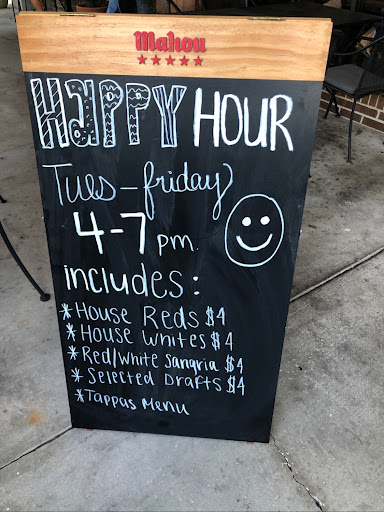 Mahou
HAPPY HOUR
Tues - friday
4-7 pm.
includes:
* House Reds $4
* House Whites $4
* Red/White Sangria $4
* Selected Drafts $4
* Tappas Menu